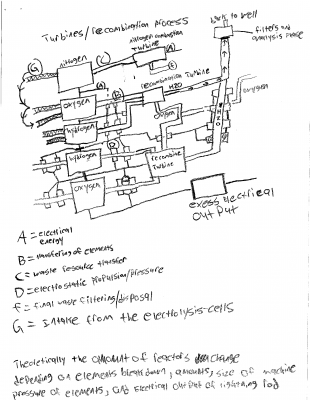 Turbines/recombination process
back to well
filters and analysis phase
nitrogen combustion
turbine
nitrogen
G
C
A
F
recombination Turbine
H2O
oxygen
B
oxygen
oxygen
hydrogen
D
H2O
hydrogen
recombine
turbine
oxygen
exess electrical
out put
A = electrical
energy
B = transfering of elements
C = waste resource transfer
D = electrostatic propulsion/pressure
F = final waste filtering/disposal
G = intake from the electrolysis-cells
Theoretically the amount of reactors change
depending on elements break down, amounts, size of machine
pressure of elements, and electrical output of lightning rod